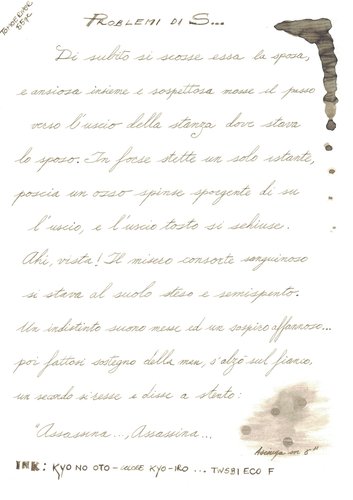 PROBLEMI DI S...
TOMOE RIVER
Di subito si scosse essa la sposa,
e ansiosa insieme e sospettosa mosse il passo
verso l'uscio della stanza dove stava
lo sposo. In forse stette un solo istante,
poscia un osso spinse sporgente di su
l'uscio, e l'uscio tosto si schiuse.
Ahi, vista! Il misero consorte sanguinoso
si stava al suolo steso e semispento.
Un indistinto suono messe ed un sospiro affannoso...
poi fattosi sostegno della man, s'alzò sul fianco,
un secondo si resse e disse a stento:
"Assassina..., Assassina...
Asciuga in 5"
INK: KYO NO OTO - KYO-IRO ... TWSBI ECO F